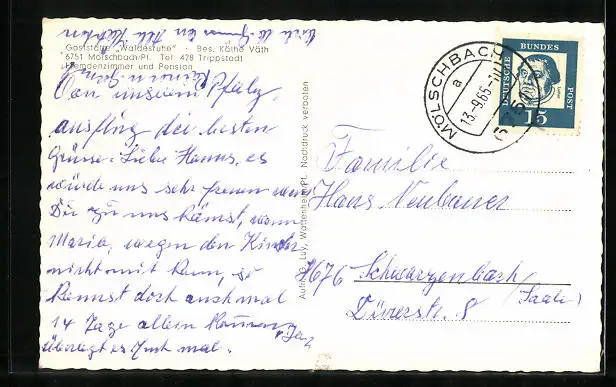 Gaststätte "Waldesruhe" · Bes. Käthe Väth
6751 Mölschbach/Pf. Tel. 478 Trippstadt
Fremdenzimmer und Pension
Von unserem Pfalz
ausflug die besten
Grüsse. Liebe Hanna, es
würde uns sehr freuen wenn
Du zu uns kämst, wenn
Maria, wegen den Kinder
nicht mit kann, so
kannst doch auch mal
14 Tage allein kommen
überlegt es Euch mal.
Aufn. G. Luy, Wattenheim/Pf. Nachdruck verboten
MÖLSCHBACH
a
13.-9.65.-
6751
DEUTSCHE BUNDES POST
15
Familie
Hans Neubauer
8676 Schwarzenbach/
(Saale)
Dürerstr. 8